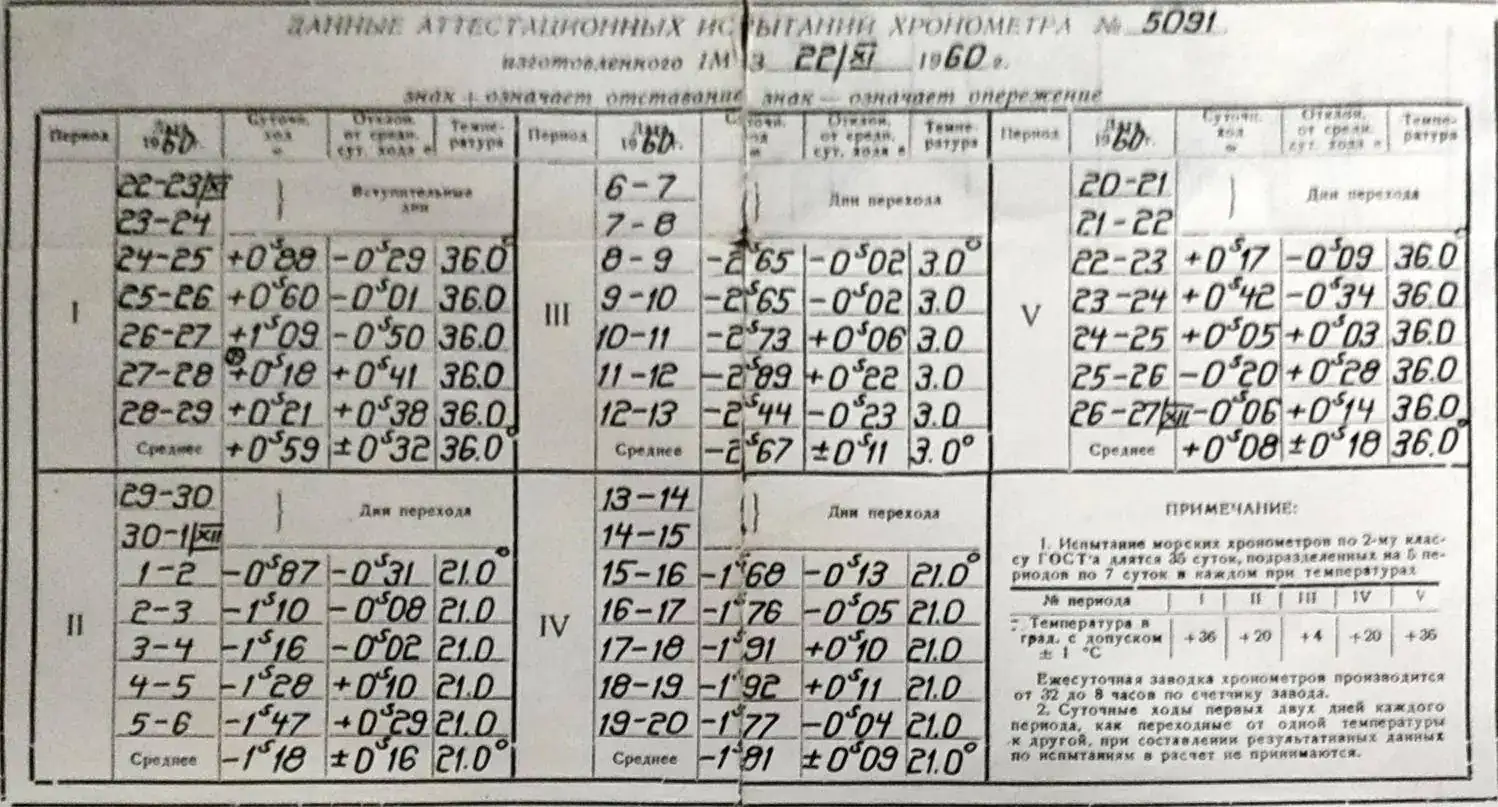 ДАННЫЕ АТТЕСТАЦИОННЫХ ИСПЫТАНИЙ ХРОНОМЕТРА № 5091
изготовленного 1МЧЗ 22/XI 1960 г.
знак + означает отставание, знак — означает опережение
Период 1960г. Суточн. ход ω Отклон. от средн. сут. хода в Температура
I
22-23/XI Вступительные
23-24 дни
24-25 +0ˢ88 -0ˢ29 36.0°
25-26 +0ˢ60 -0ˢ01 36.0
26-27 +1ˢ09 -0ˢ50 36.0
27-28 +0ˢ18 +0ˢ41 36.0
28-29 +0ˢ21 +0ˢ38 36.0
Среднее +0ˢ59 ±0ˢ32 36.0°
II
29-30 Дни перехода
30-1/XII
1-2 -0ˢ87 -0ˢ31 21.0°
2-3 -1ˢ10 -0ˢ08 21.0
3-4 -1ˢ16 -0ˢ02 21.0
4-5 -1ˢ28 +0ˢ10 21.0
5-6 -1ˢ47 +0ˢ29 21.0
Среднее -1ˢ18 ±0ˢ16 21.0°
Период 1960г. Суточн. ход ω Отклон. от средн. сут. хода в Температура
III
6-7 Дни перехода
7-8
8-9 -2ˢ65 -0ˢ02 3.0°
9-10 -2ˢ65 -0ˢ02 3.0
10-11 -2ˢ73 +0ˢ06 3.0
11-12 -2ˢ89 +0ˢ22 3.0
12-13 -2ˢ44 -0ˢ23 3.0
Среднее -2ˢ67 ±0ˢ11 3.0°
IV
13-14 Дни перехода
14-15
15-16 -1ˢ68 -0ˢ13 21.0°
16-17 -1ˢ76 -0ˢ05 21.0
17-18 -1ˢ91 +0ˢ10 21.0
18-19 -1ˢ92 +0ˢ11 21.0
19-20 -1ˢ77 -0ˢ04 21.0
Среднее -1ˢ81 ±0ˢ09 21.0°
Период 1960г. Суточн. ход ω Отклон. от средн. сут. хода в Температура
V
20-21 Дни перехода
21-22
22-23 +0ˢ17 -0ˢ09 36.0°
23-24 +0ˢ42 -0ˢ34 36.0
24-25 +0ˢ05 +0ˢ03 36.0
25-26 -0ˢ20 +0ˢ28 36.0
26-27/XII -0ˢ06 +0ˢ14 36.0
Среднее +0ˢ08 ±0ˢ18 36.0°
ПРИМЕЧАНИЕ:
1. Испытание морских хронометров по 2-му клас-
су ГОСТ'а длятся 35 суток, подразделенных на 5 пе-
риодов по 7 суток в каждом при температурах
№ периода I II III IV V
Температура в
град. с допуском +36 +20 +4 +20 +36
± 1 °C
Ежесуточная заводка хронометров производится
от 32 до 8 часов по счетчику завода.
2. Суточные ходы первых двух дней каждого
периода, как переходные от одной температуры
к другой, при составлении результативных данных
по испытаниям в расчет не принимаются.